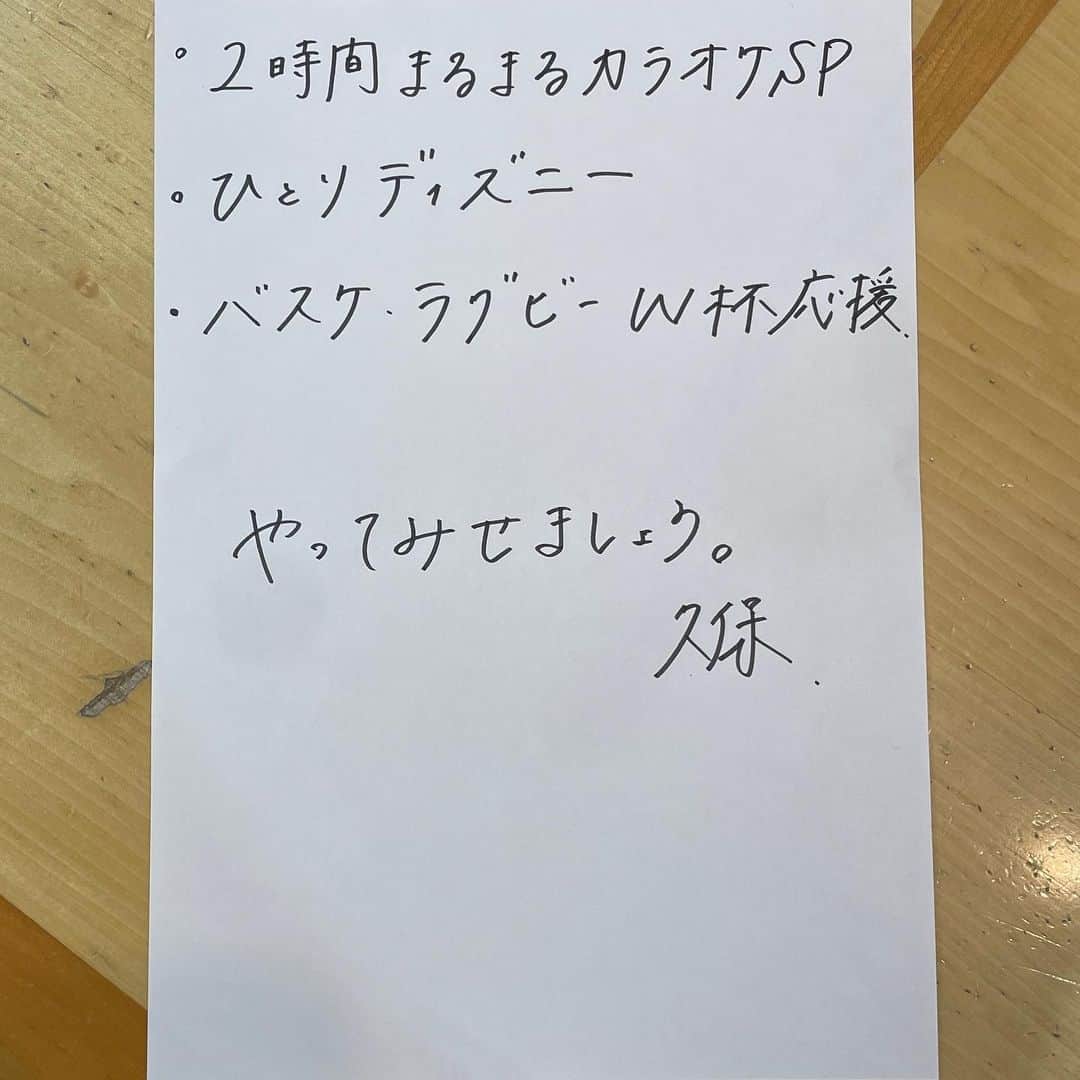 。2時間まるまるカラオケSP
。ひとりディズニー
・バスケ・ラグビーW杯応援.
やってみせましょう。
久保.